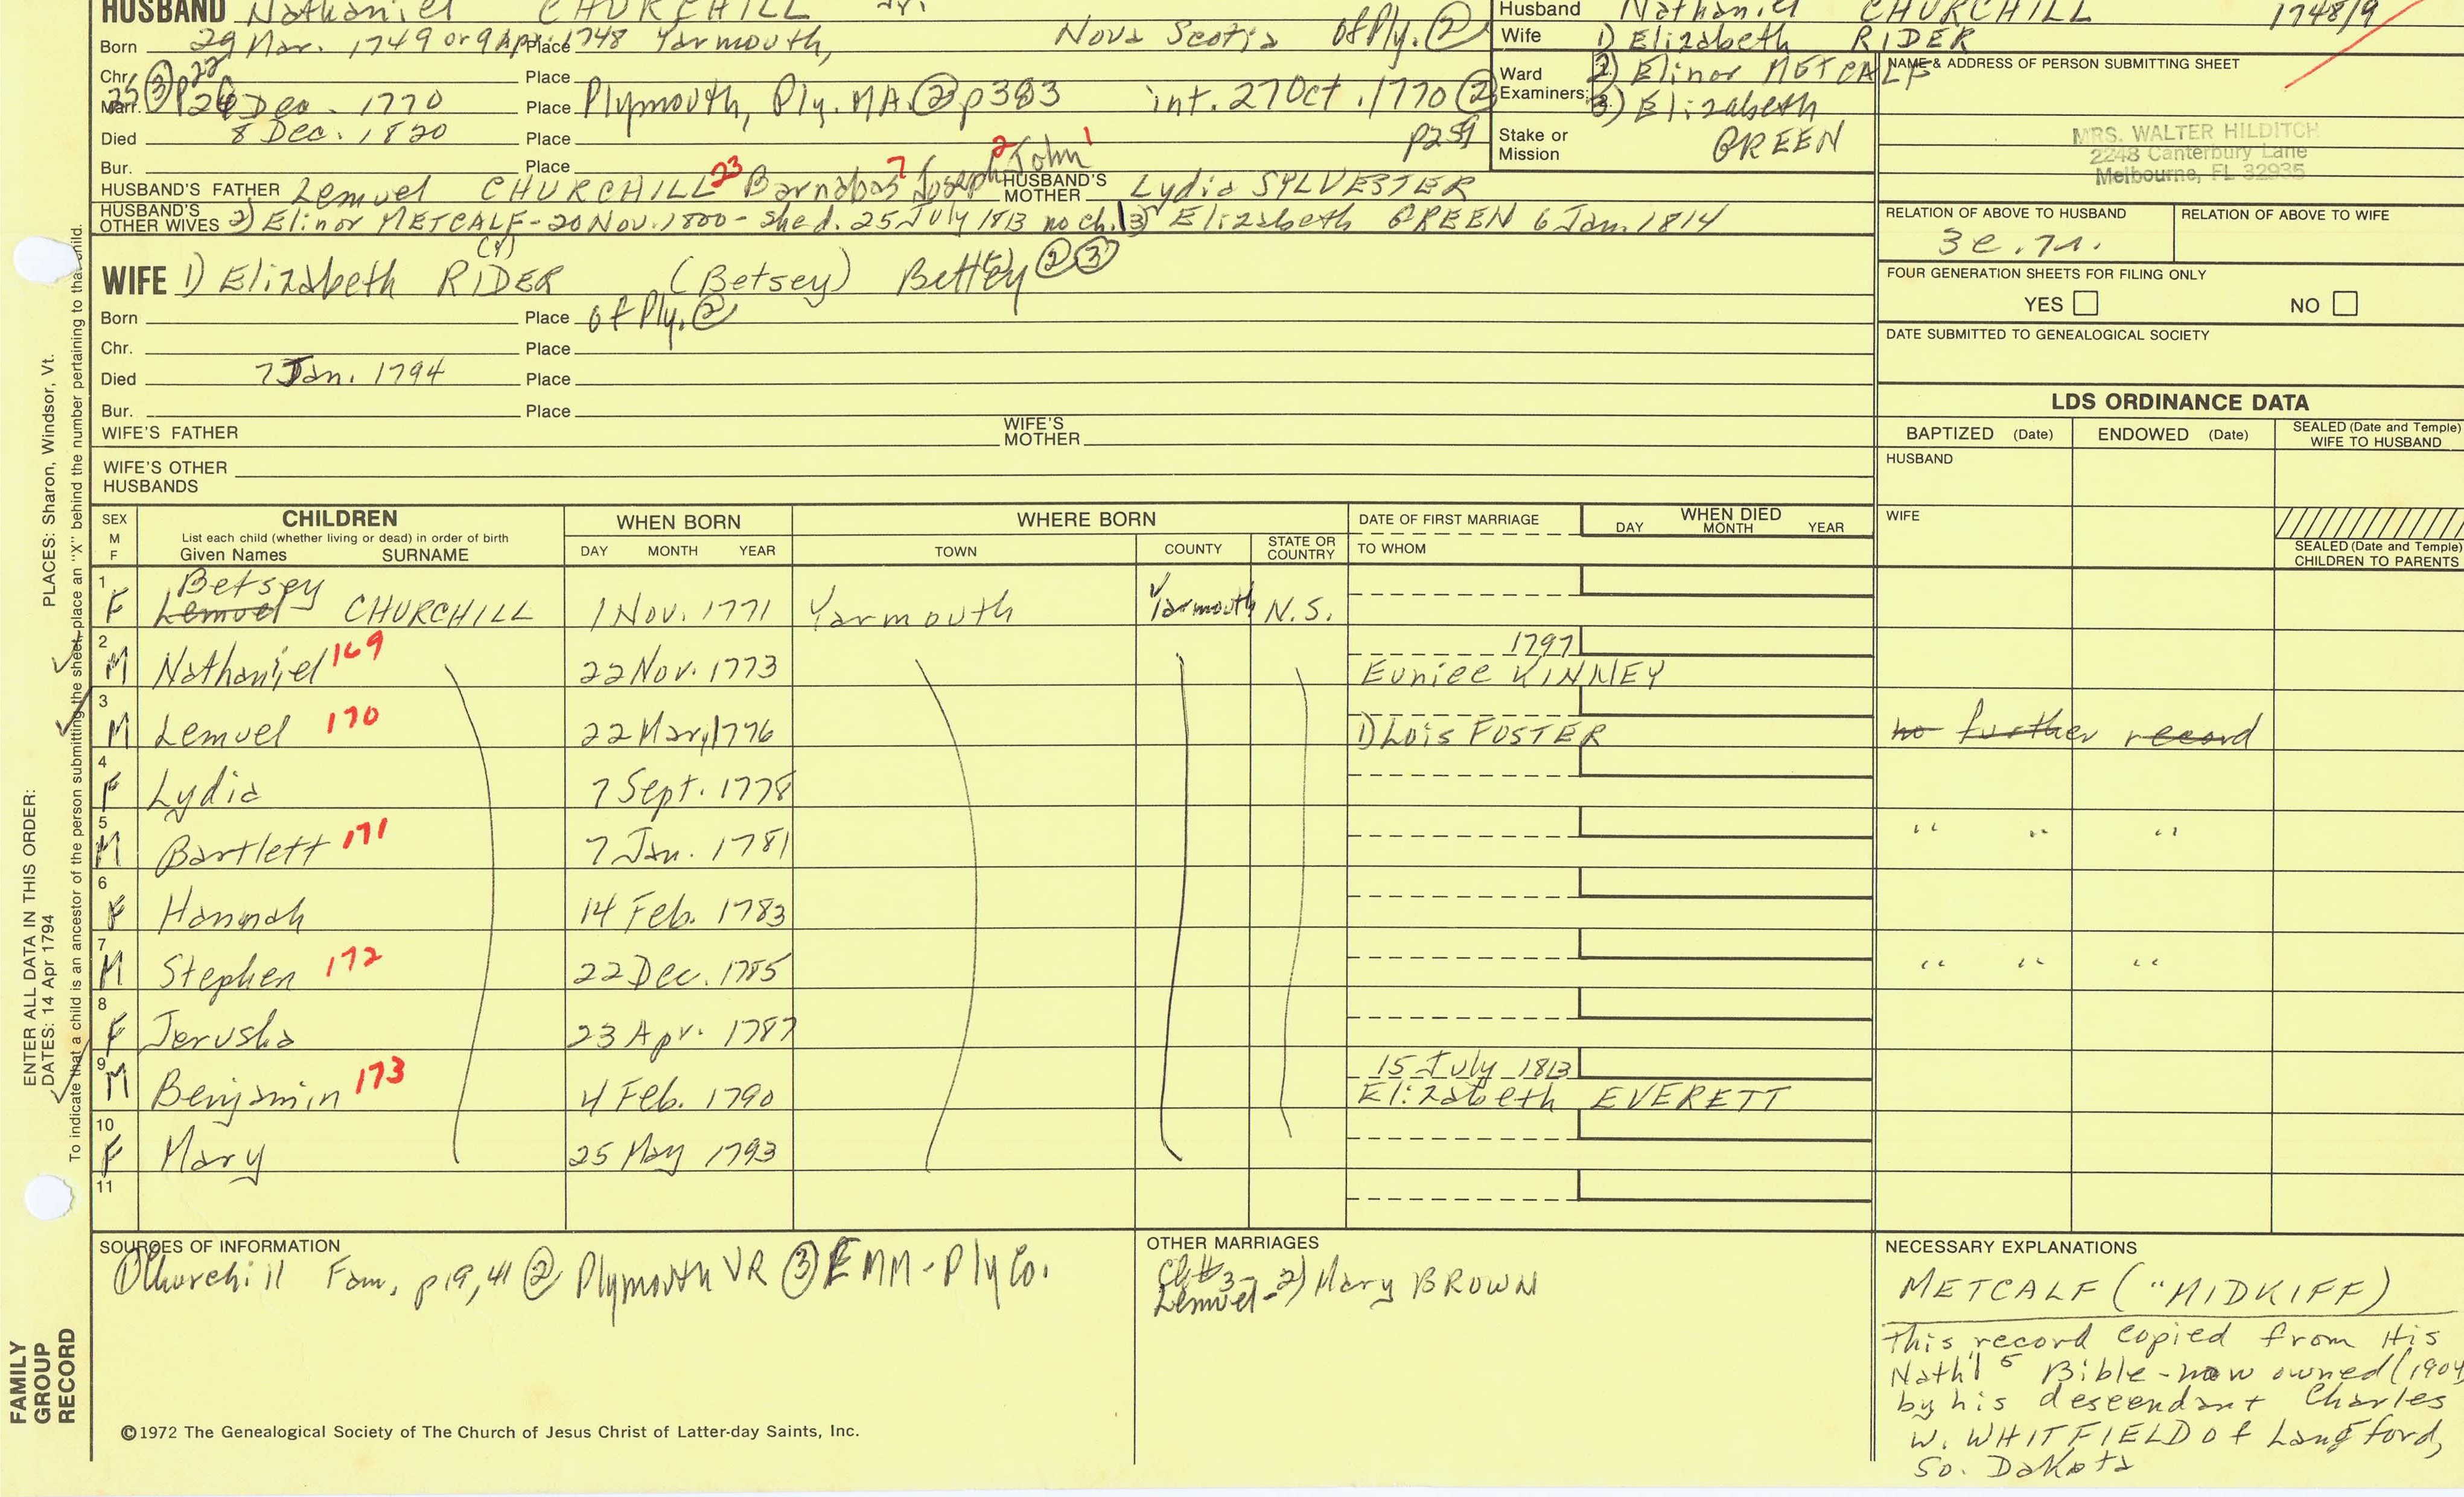 HUSBAND Nathaniel CHURCHILL Jr.
Born 29 Mar. 1749 or 9 Apr. 1748 Place Yarmouth, Nova Scotia of Ply. ②
Chr. Place
Marr. 25 ③ p22 24 Dec. 1770 Place Plymouth, Ply. MA. ② p383 int. 27 Oct. 1770 ② p259
Died 8 Dec. 1820 Place
Bur. Place
HUSBAND'S FATHER Lemuel CHURCHILL 23 Barnabas 7 Joseph 2 John 1 HUSBAND'S MOTHER Lydia SYLVESTER
HUSBAND'S OTHER WIVES 2) Elinor METCALF - 20 Nov. 1800 - she d. 25 July 1813 no ch. 3) Elizabeth GREEN 6 Jan. 1814
Husband Nathaniel CHURCHILL 1748/9
Wife 1) Elizabeth RIDER
2) Elinor METCALF
3) Elizabeth GREEN
Ward
Examiners:
Stake or
Mission
NAME & ADDRESS OF PERSON SUBMITTING SHEET
MRS. WALTER HILDITCH
2248 Canterbury Lane
Melbourne, FL 32935
RELATION OF ABOVE TO HUSBAND
RELATION OF ABOVE TO WIFE
FOUR GENERATION SHEETS FOR FILING ONLY
YES NO
DATE SUBMITTED TO GENEALOGICAL SOCIETY
WIFE 1) Elizabeth RIDER (Betsey) Bettey ② ③
Born Place of Ply. ②
Chr. Place
Died 7 Jan. 1794 Place
Bur. Place
WIFE'S FATHER WIFE'S MOTHER
WIFE'S OTHER
HUSBANDS
LDS ORDINANCE DATA
BAPTIZED (Date) ENDOWED (Date) SEALED (Date and Temple) WIFE TO HUSBAND
HUSBAND
WIFE
SEALED (Date and Temple) CHILDREN TO PARENTS
SEX M F
CHILDREN
List each child (whether living or dead) in order of birth
Given Names SURNAME
WHEN BORN
DAY MONTH YEAR
WHERE BORN
TOWN COUNTY STATE OR COUNTRY
DATE OF FIRST MARRIAGE
TO WHOM
WHEN DIED
DAY MONTH YEAR
1 F Betsey Lemuel CHURCHILL 1 Nov. 1771 Yarmouth Yarmouth N.S.
2 M Nathaniel 169 22 Nov. 1773 1797 Eunice KINNEY
3 M Lemuel 170 22 Mar. 1776 1) Lois FOSTER no further record
4 F Lydia 7 Sept. 1778
5 M Bartlett 171 7 Jan. 1781 " " "
6 F Hannah 14 Feb. 1783
7 M Stephen 172 22 Dec. 1785 " " "
8 F Jerusha 23 Apr. 1787
9 M Benjamin 173 4 Feb. 1790 15 July 1813 Elizabeth EVERETT
10 F Mary 25 May 1793
11
SOURCES OF INFORMATION
① Churchill Fam, p19, 41 ② Plymouth VR ③ EMM - Ply Co.
OTHER MARRIAGES
Ch#3 -
Lemuel - 2) Mary BROWN
NECESSARY EXPLANATIONS
METCALF ("MIDKIFF)
This record copied from His
Nath'l 5 Bible - now owned (1904
by his descendant Charles
W. WHITFIELD of Langford,
So. Dakota
©1972 The Genealogical Society of The Church of Jesus Christ of Latter-day Saints, Inc.
PLACES: Sharon, Windsor, Vt.
To indicate that a child is an ancestor of the person submitting the sheet, place an "X" behind the number pertaining to that child.
ENTER ALL DATA IN THIS ORDER:
DATES: 14 Apr 1794
FAMILY
GROUP
RECORD